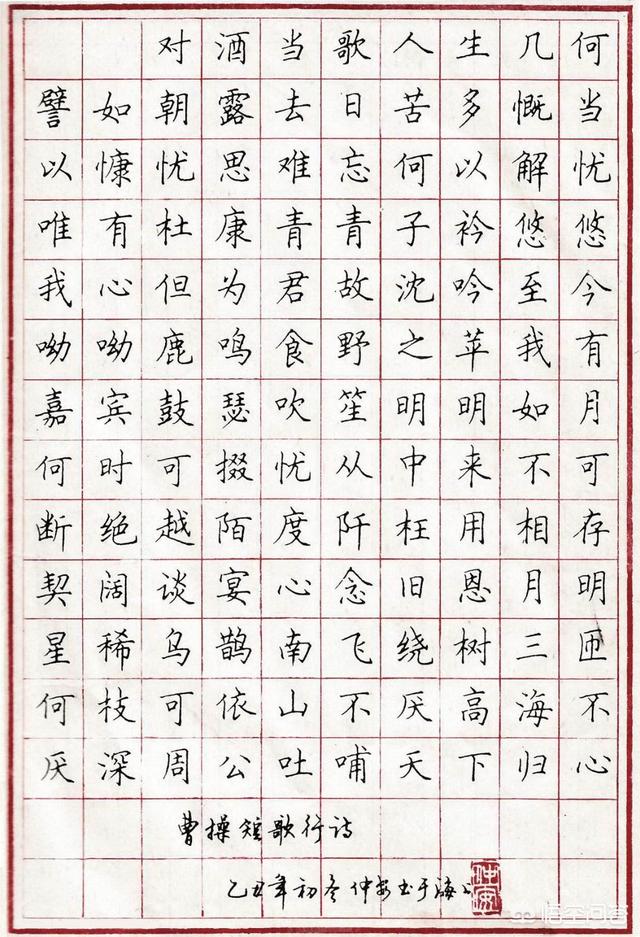 对酒当歌人生几何
譬如朝露去日苦多慨当
以慷忧思难忘何以解忧
唯有杜康青青子衿悠悠
我心但为君故沈吟至今
呦呦鹿鸣食野之苹我有
嘉宾鼓瑟吹笙明明如月
何时可掇忧从中来不可
断绝越陌度阡枉用相存
契阔谈宴心念旧恩月明
星稀乌鹊南飞绕树三匝
何枝可依山不厌高海不
厌深周公吐哺天下归心
曹操短歌行诗
乙丑年初冬仲安书于海上
悟空问答